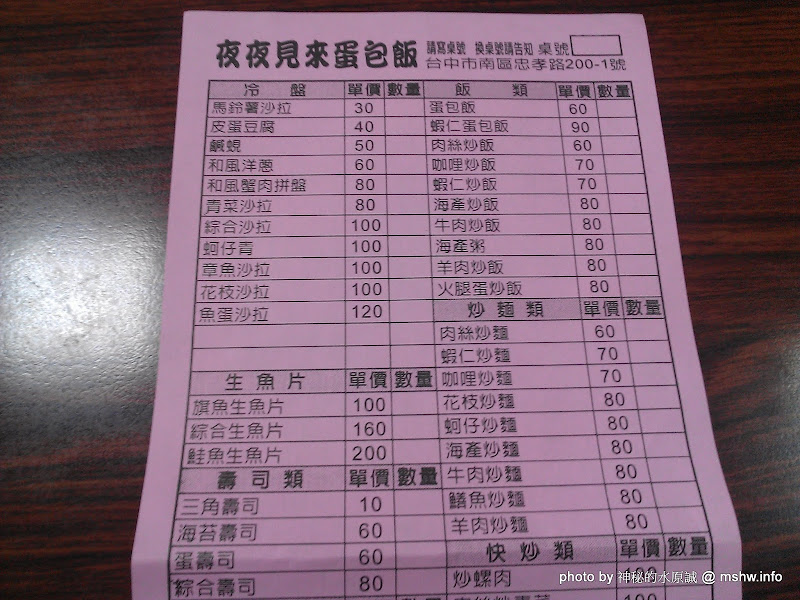 夜夜見來蛋包飯 請寫桌號 換桌號請告知 桌號
台中市南區忠孝路200-1號
冷盤 單價 數量 飯類 單價 數量
馬鈴薯沙拉 30 蛋包飯 60
皮蛋豆腐 40 蝦仁蛋包飯 90
鹹蜆 50 肉絲炒飯 60
和風洋蔥 60 咖哩炒飯 70
和風蟹肉拼盤 80 蝦仁炒飯 70
青菜沙拉 80 海產炒飯 80
綜合沙拉 100 牛肉炒飯 80
蚵仔青 100 海產粥 80
草魚沙拉 100 羊肉炒飯 80
花枝沙拉 100 火腿蛋炒飯 80
魚蛋沙拉 120 炒麵類 單價 數量
肉絲炒麵 60
蝦仁炒麵 70
生魚片 單價 數量 咖哩炒麵 70
旗魚生魚片 100 花枝炒麵 80
綜合生魚片 160 蚵仔炒麵 80
鮭魚生魚片 200 海產炒麵 80
壽司類 單價 數量 牛肉炒麵 80
三角壽司 10 鱔魚炒麵 80
海苔壽司 60 羊肉炒麵 80
蛋壽司 60 快炒類 單價 數量
綜合壽司 80 炒螺肉
photo by 神秘的水原誠 @ mshw.info